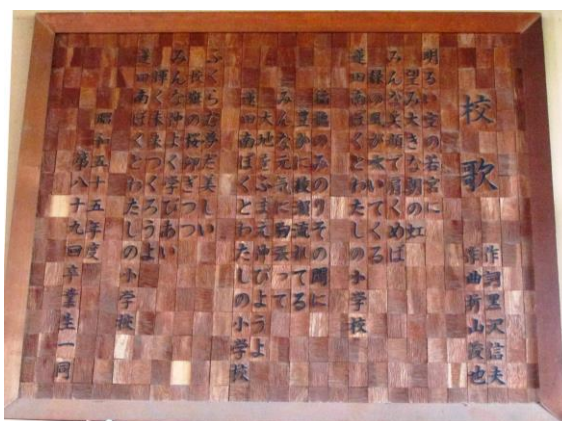 校歌
作詞 里沢信夫
作曲 折山茂也
明るい空の若宮に
望み大きな朝の虹
みんな笑顔で肩くめば
緑の風が吹いてくる
蓮田南ぼくとわたしの小学校
稲穂のみのりその間に
豊かに綾瀬流れてる
みんな元気に胸張って
大地をふまえ伸びようよ
蓮田南ぼくとわたしの小学校
ふくらむ夢だ美しい
校庭の桜仰ぎつつ
みんな仲よく学びあい
輝く未来つくろうよ
蓮田南ぼくとわたしの小学校
昭和五十五年度
第八十九回卒業生一同